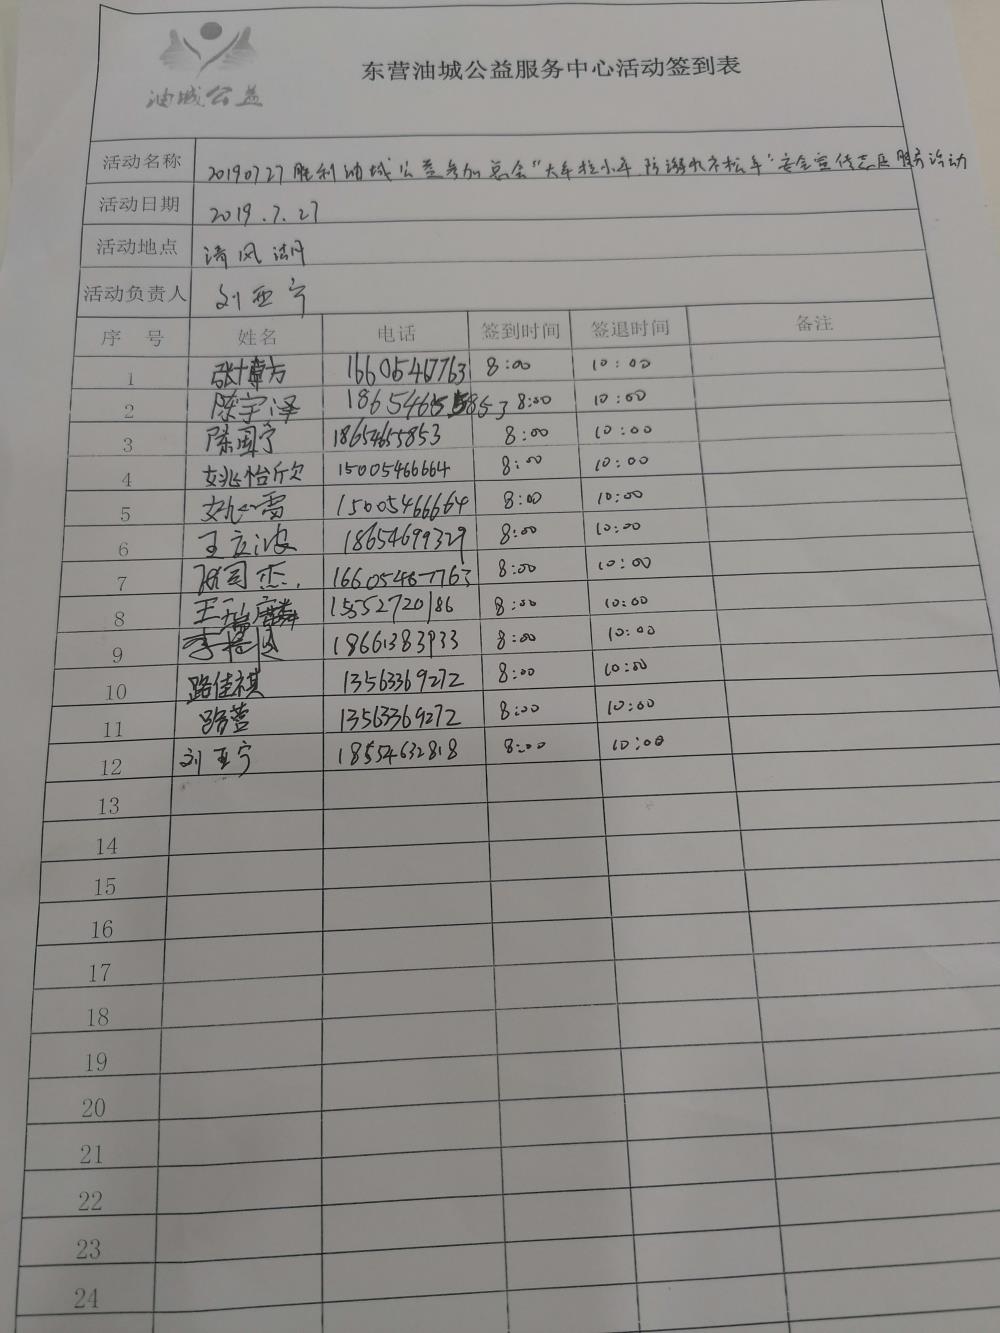 油城公益
东营油城公益服务中心活动签到表
活动名称 20190727胜利油城公益参加总会"大手拉小手 防溺水不松手"安全宣传志愿服务活动
活动日期 2019.7.27
活动地点 清风湖
活动负责人 刘亚宁
序号 姓名 电话 签到时间 签退时间 备注
1 张博方 16605467763 8:00 10:00
2 陈宇泽 18654655853 8:00 10:00
3 陈国宁 18654655853 8:00 10:00
4 姚怡欣 15005466664 8:00 10:00
5 姚心雷 15005466664 8:00 10:00
6 王立波 18654699329 8:00 10:00
7 杰 16605467763 8:00 10:00
8 王瑞麟 15552720186 8:00 10:00
9 李 18661383933 8:00 10:00
10 路佳祺 13563369272 8:00 10:00
11 路营 13563369272 8:00 10:00
12 刘亚宁 18554632818 8:00 10:00
13
14
15
16
17
18
19
20
21
22
23
24